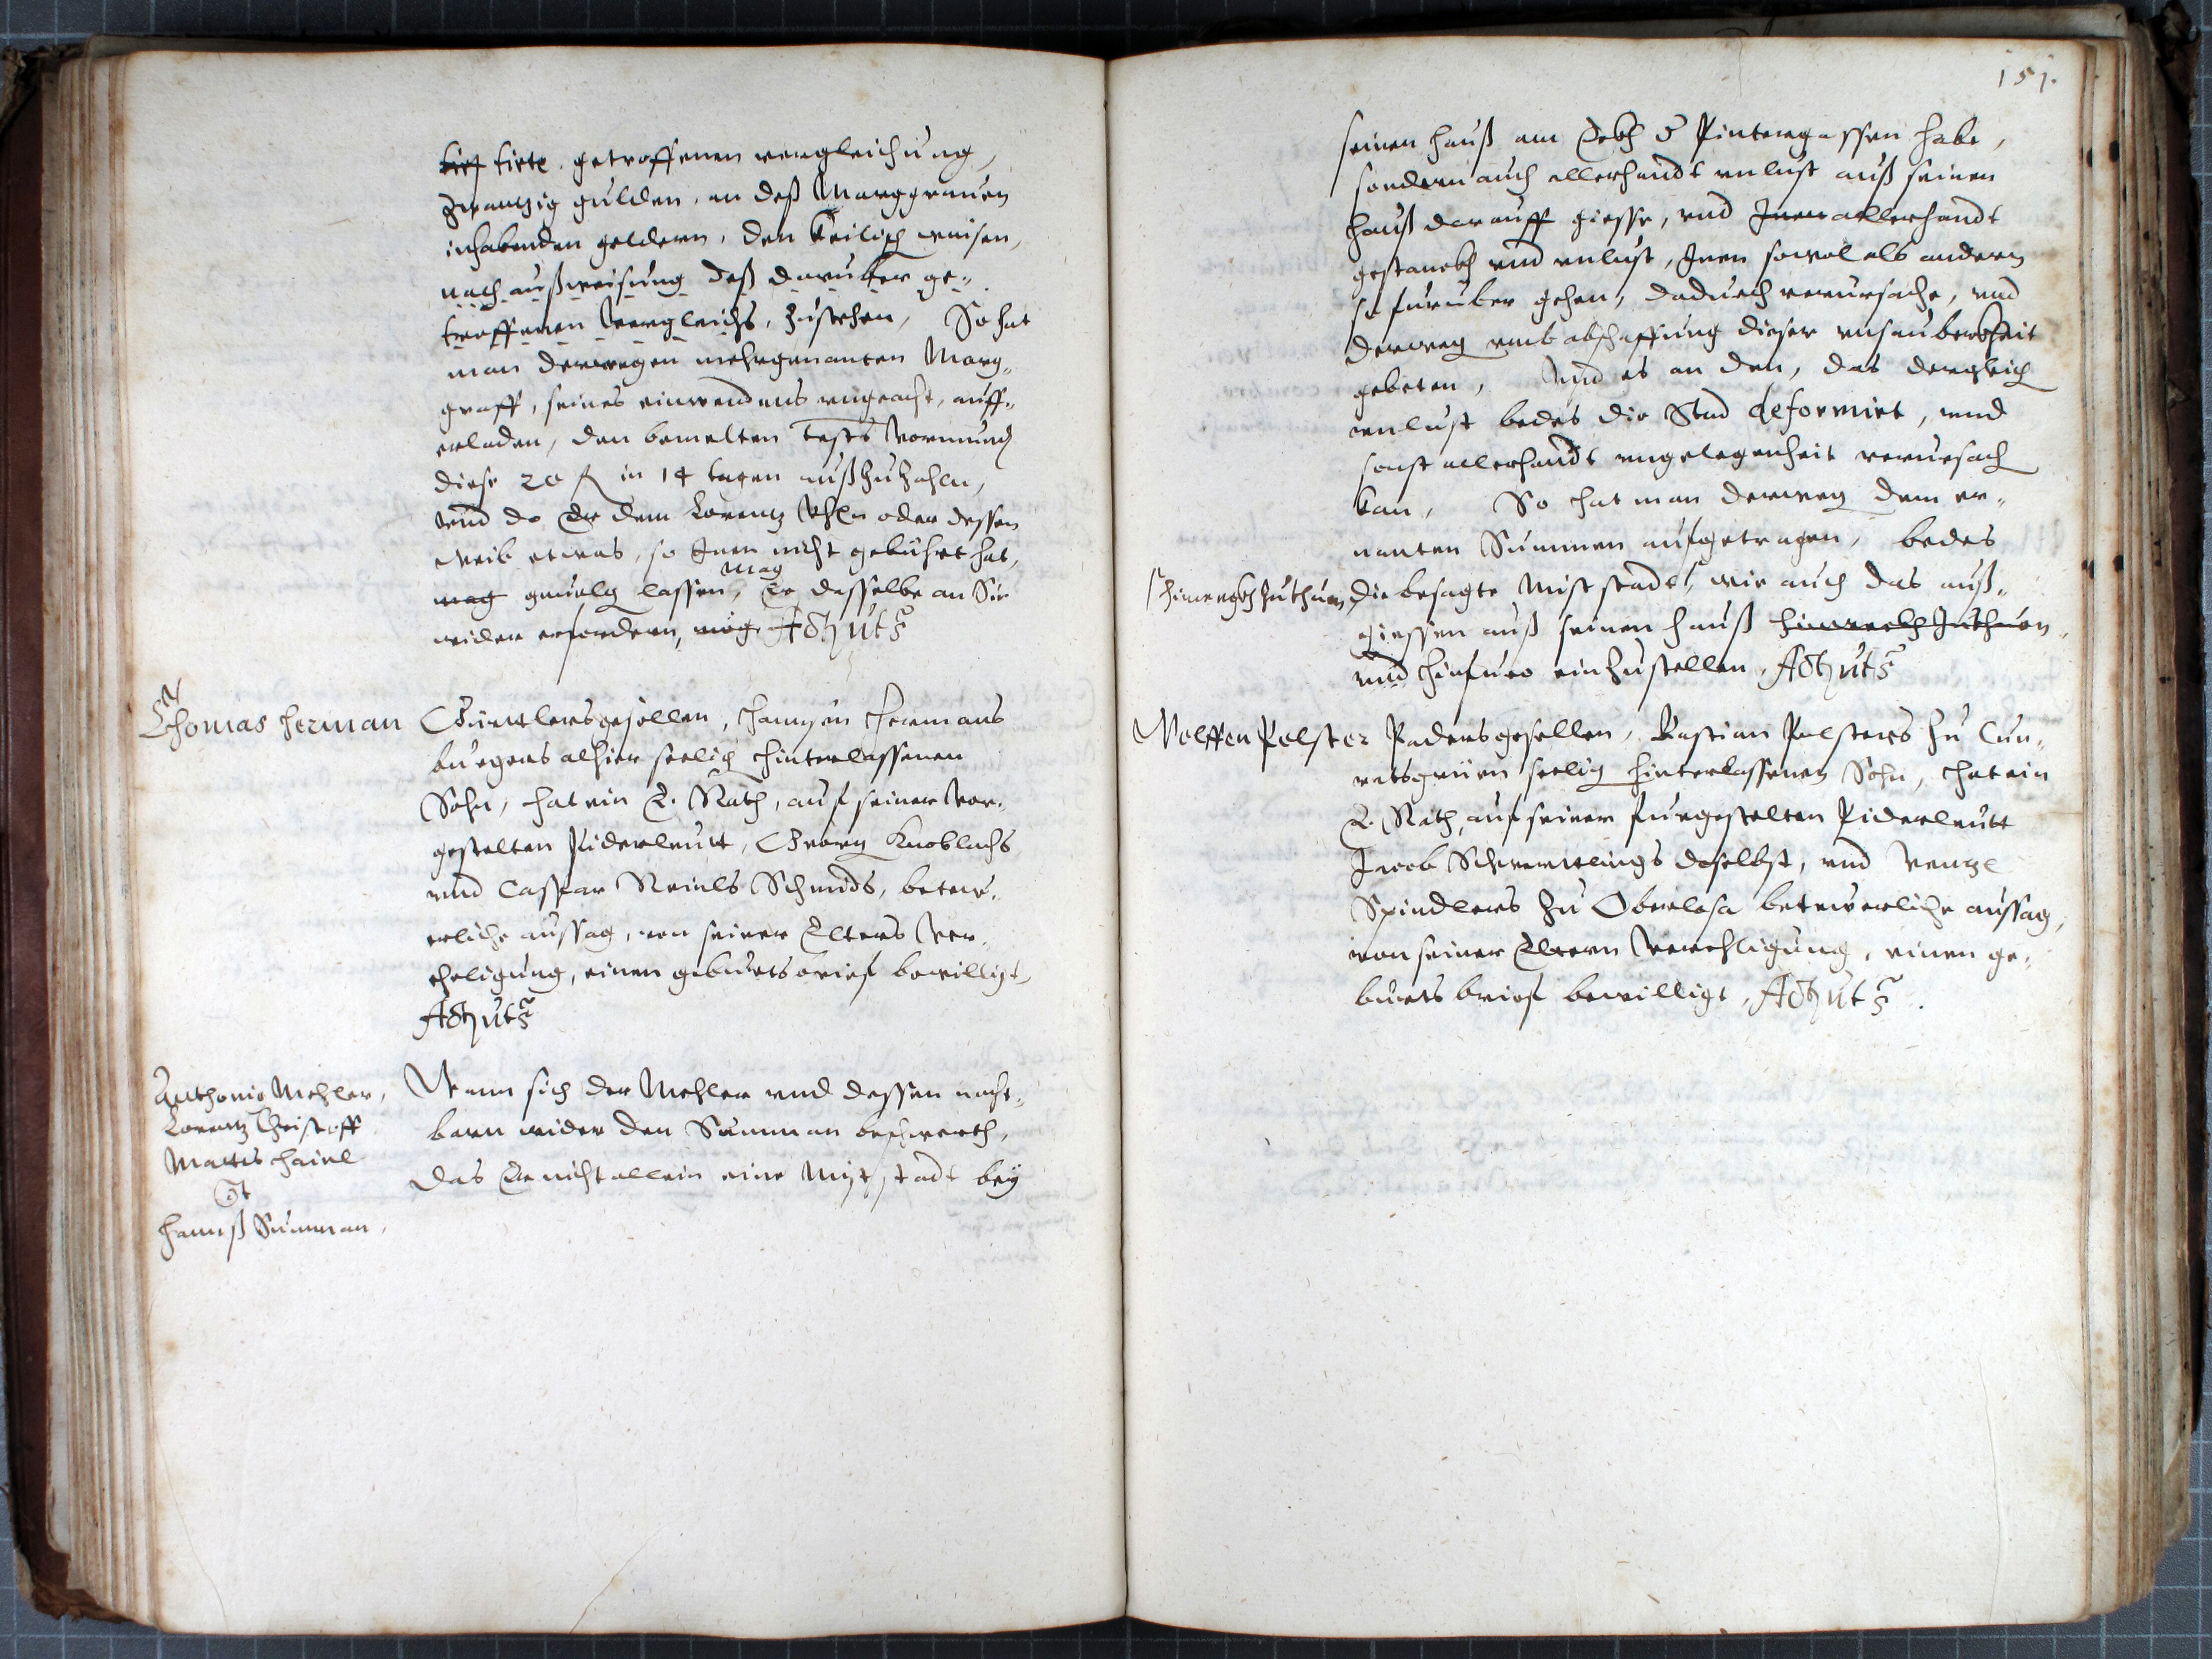 tirte getroffenen vergleichung,
zwantzig gulden, an deß Marggrauen
inhabenden geldern, den weisen,
nach außweisung deß daruber ge„
troffenen Vergleichs, zustehen, So hat
man derwegen mehrgenanten Marg„
graff, seines einwendens vngeacht, auff„
erladen, den bemelten Vormund
diese 20 fl in 14 tagen außzuzahln,
vnd do Er dem Lorentz oder dessen
weib etwas, so Inen nicht gebühret hat,
mag
mag lassen, Er dasselbe an Sie
wider erfordern, mög. Act ut s
N
Thomas Herman Gürttlersgesellen, Hermans
burgers alhier seelig hinterlassenen
Sohn, hat ein E. Rath, auf seiner vor„
gestelten Piderleutt, Georg Knoblachs
vnd Caspar Schmids, betew„
erliche aussag, von seiner Eltern Ver„
eheligung, einen geburtsbrief bewilligt,
Act ut s
Anthonio Mehler,
Lorentz Christoff
Mattes Hainl
Ct
Hannß Summan,
Wann sich der Mehler vnd dessen nach„
barn wider den Summan beschwerth,
das Er nicht allein eine Mist stadt bey
151.
seinem hauß am Eckh d Pintergassen habe,
sondern auch allerhandt vnlust auß seinem
hauß darauff giesse, vnd Inen allerhandt
gestanckh vnd vnlust, Inen sowol als andern
so furuber gehen, dadurch verursache, vnd
derweg vmb abschaffung dieser vnsauberkheit
gebeten, Vnd es an dem, das dergleich
vnlust bedes die Stad deformirt, vnd
sonst allerhandt vngelegenheit verursach
kan, So hat man derweg dem er„
nanten Summen aufgetragen, bedes
hinwegkh zuthuen, die besagte Mist stadt, wie auch das auß„
giessen auß seinem hauß hinwegkh zuthuen,
vnd hinfuro einzustellen, Act ut s
Wolffen Polster Padersgesellen, Bastian Polsters zu Cun„
ratsgrüen seelig hinterlassenen Sohn, hat ein
E. Rath, auf seiner furgestelten Piderleutt
Jacob daselbst, vnd
Spindlers zu Oberlosa betewerliche aussag,
von seiner Eltern Verehligung, einen ge„
burtsbrief bewilligt, Act ut s.